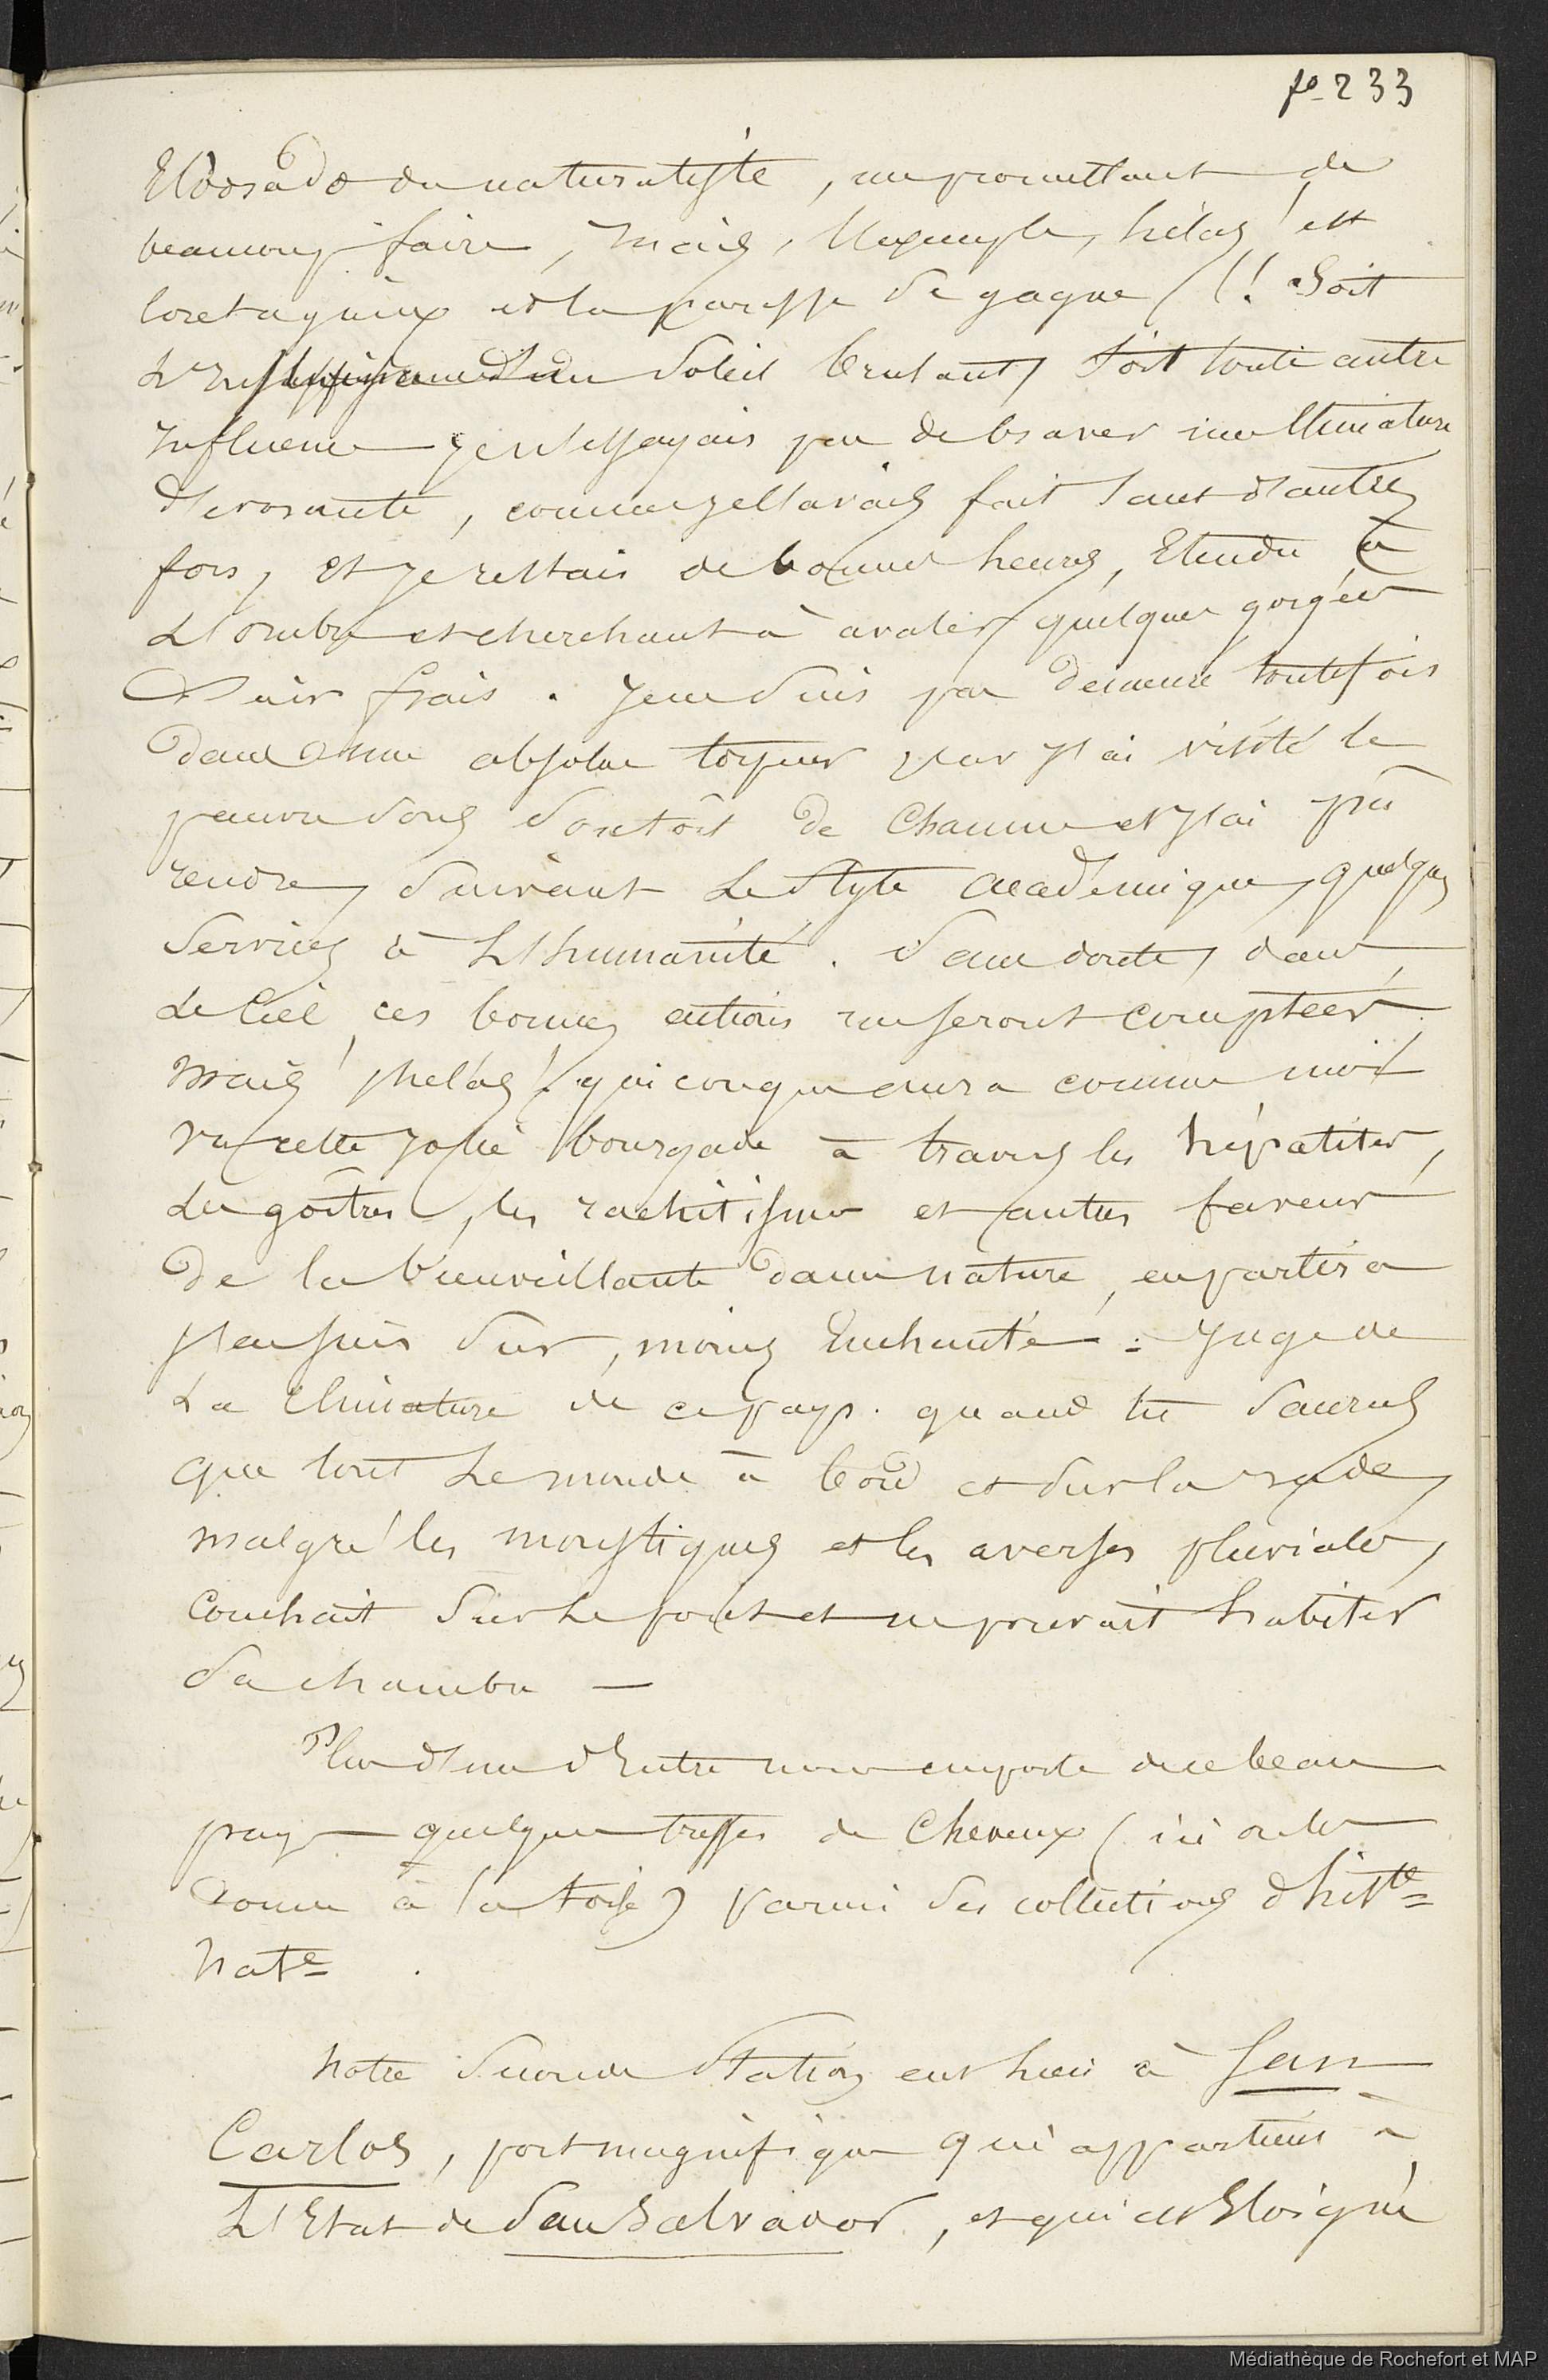 fo 233
Eldorado du naturaliste, me promettant de
beaucoup faire, mais, l'exemple, hélas! est
contagieux et la paresse se gagne!! Soit
l'influence d'un Soleil brulant, soit toute autre
influence je n'essayais pas de braver une climature
devorante, comme je l'avais fait tant d'autres
fois, et je restais de bonnes heures, étendu à
l'ombre et cherchant à avaler quelques gorgées
d'air frais. Je ne suis pas demeuré toutefois
dans une absolue torpeur car j'ai visité le
pauvre sous son toit de chaume et j'ai pû
rendre, suivant le style académique, quelques
services à l'humanité. Sans doute, dans
le ciel ces bonnes actions me seront comptées
mais! hélas! quiconque aura comme moi
vu cette jolie bourgade à travers les hépatites,
les goîtres, les rachitisme et autres faveurs
de la bienveillante dame nature, en partira
j'en suis sur, moins enchanté. Juge de
la climature de ce pays. quand tu sauras
que tout le monde à bord et sur la rade,
malgré les moustiques et les averses pluviales,
couchait sur le pont et ne pouvait habiter
sa chambre —
Plus d'un d'entre nous emporte de ce beau
pays quelques tresses de cheveux (ici on les
donne à la toise) parmi ses collections d'histre
natle.
Notre seconde station eut lieu à San
Carlos, port magnifique qui appartient à
l'Etat de San Salvador, et qui est éloigné
Médiathèque de Rochefort et MAP